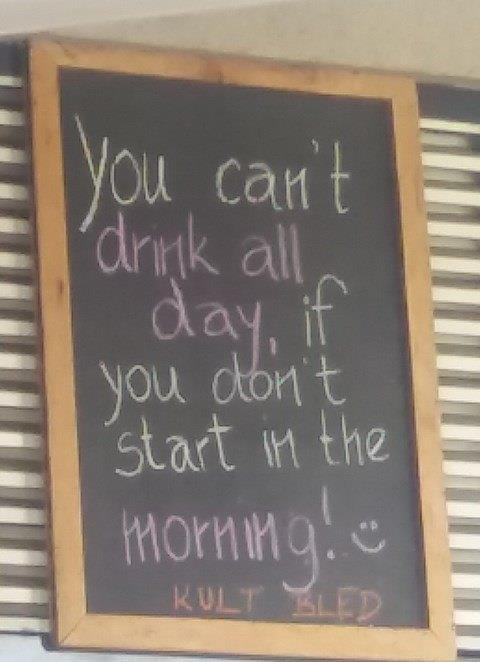 You can't
drink all
day, if
you don't
start in the
morning! :)
KULT BLED